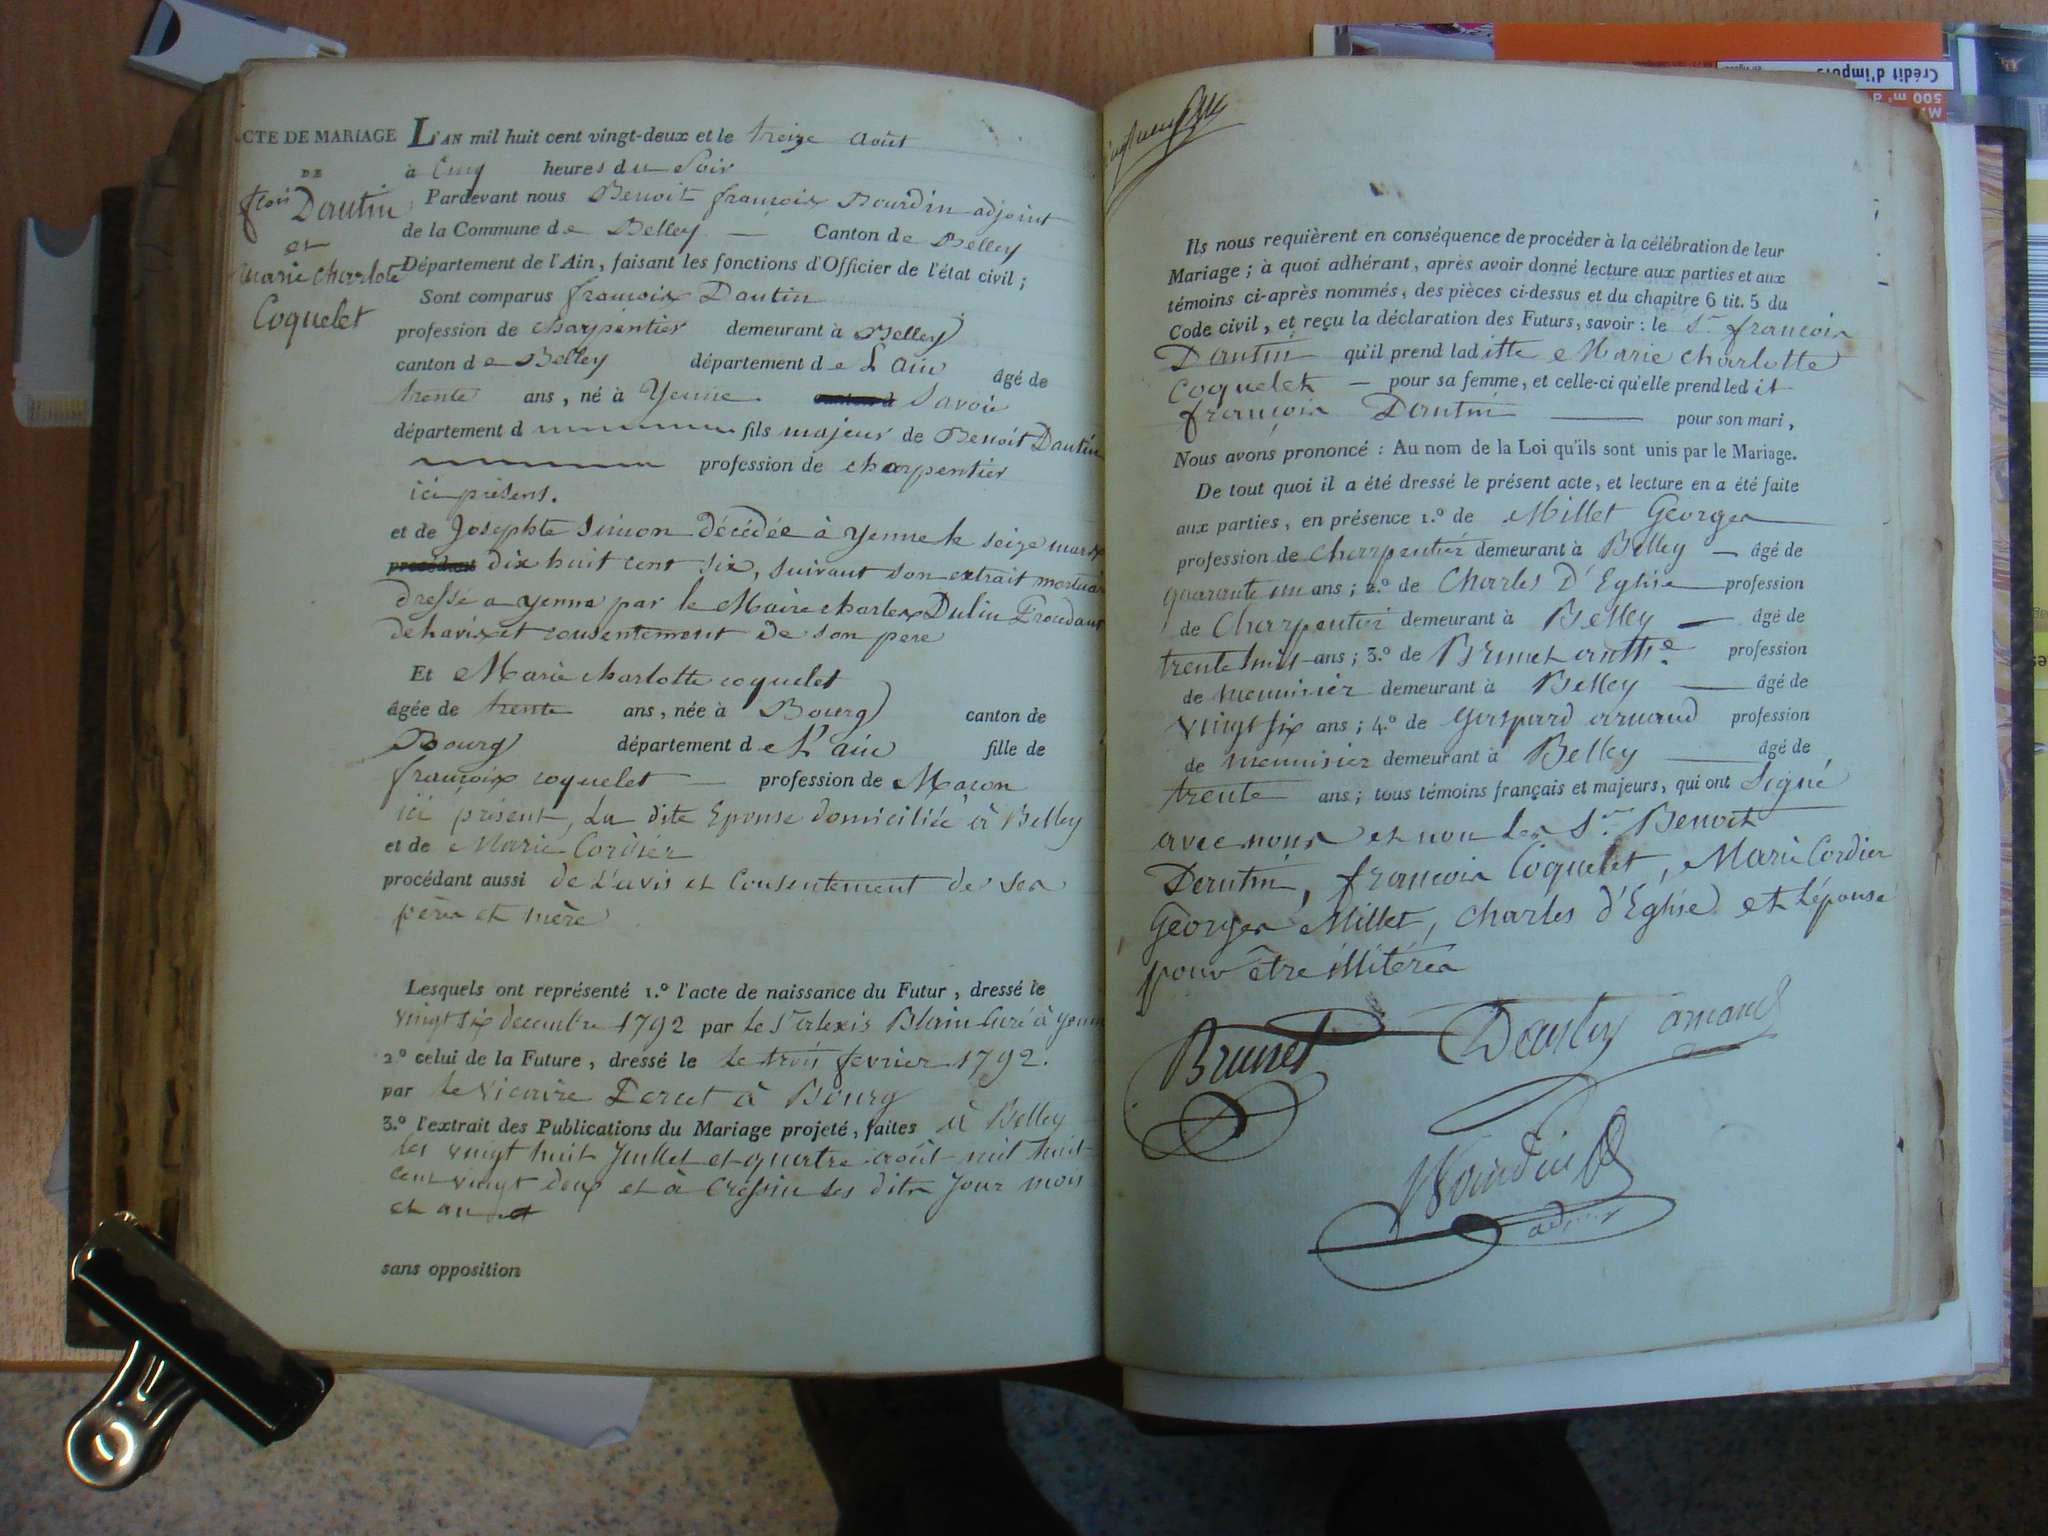 CTE DE MARIAGE
DE
fcois Dantin
et
Marie charlote
Coquelet
L'AN mil huit cent vingt-deux et le treize Août
à Cinq heures du Soir
Pardevant nous Benoit françois Bourdin adjoint
de la Commune de Belley — Canton de Belley
Département de l'Ain, faisant les fonctions d'Officier de l'état civil ;
Sont comparus françois Dantin
profession de charpentier demeurant à Belley
canton de Belley département de L'ain âgé de
trente ans, né à Yenne Savoie
département d fils majeur de Benoit Dantin
profession de charpentier
ici présent.
et de Josephte Simon décédée à yenne le seize mars
dix huit cent six, suivant son extrait mortuai
dressé a yenne par le Maire charles Dulin Procédant
de havis et consentement de son pere
Et Marie charlotte coquelet
âgée de trente ans, née à Bourg canton de
Bourg département de L'ain fille de
françois coquelet — profession de Macon
ici présent, La dite Epouse domiciliée à Belley
et de Marie Cordier
procédant aussi de L'avis et Consentement de ses
père et mère
Lesquels ont représenté 1.º l'acte de naissance du Futur, dressé le
vingt six decembre 1792 par le Sr alexis Blain Curé à yenn
2º celui de la Future, dressé le le trois fevrier 1792.
par le vicaire à Bourg
3.º l'extrait des Publications du Mariage projeté, faites à Belley
les vingt huit Juillet et quatre août mil huit
cent vingt deux et à Cressin les dits Jour mois
et an
sans opposition
Ils nous requièrent en conséquence de procéder à la célébration de leur
Mariage ; à quoi adhérant, après avoir donné lecture aux parties et aux
témoins ci-après nommés, des pièces ci-dessus et du chapitre 6 tit. 5 du
Code civil, et reçu la déclaration des Futurs, savoir : le Sr françois
Dantin qu'il prend laditte Marie charlotte
Coquelet — pour sa femme, et celle-ci qu'elle prend ledit
françois Dantin — pour son mari,
Nous avons prononcé : Au nom de la Loi qu'ils sont unis par le Mariage.
De tout quoi il a été dressé le présent acte, et lecture en a été faite
aux parties, en présence 1.º de Millet Georges
profession de charpentier demeurant à Belley — âgé de
quarante un ans ; 2.º de Charles D'Eglise profession
de Charpentier demeurant à Belley — âgé de
trente huit ans ; 3.º de Brunet anthe profession
de menuisier demeurant à Belley — âgé de
vingt six ans ; 4.º de Gaspard arnaud profession
de menuisier demeurant à Belley — âgé de
trente ans ; tous témoins français et majeurs, qui ont Signé
avec nous et non les Sr Benoit
Dantin, françois Coquelet, Marie Cordier
Georges Millet, charles d'Eglise et L'épouse
pour être illitérés
Brunet Dantin arnaud
Bourdin
adjoint
Crédit d'impôts
500 m²